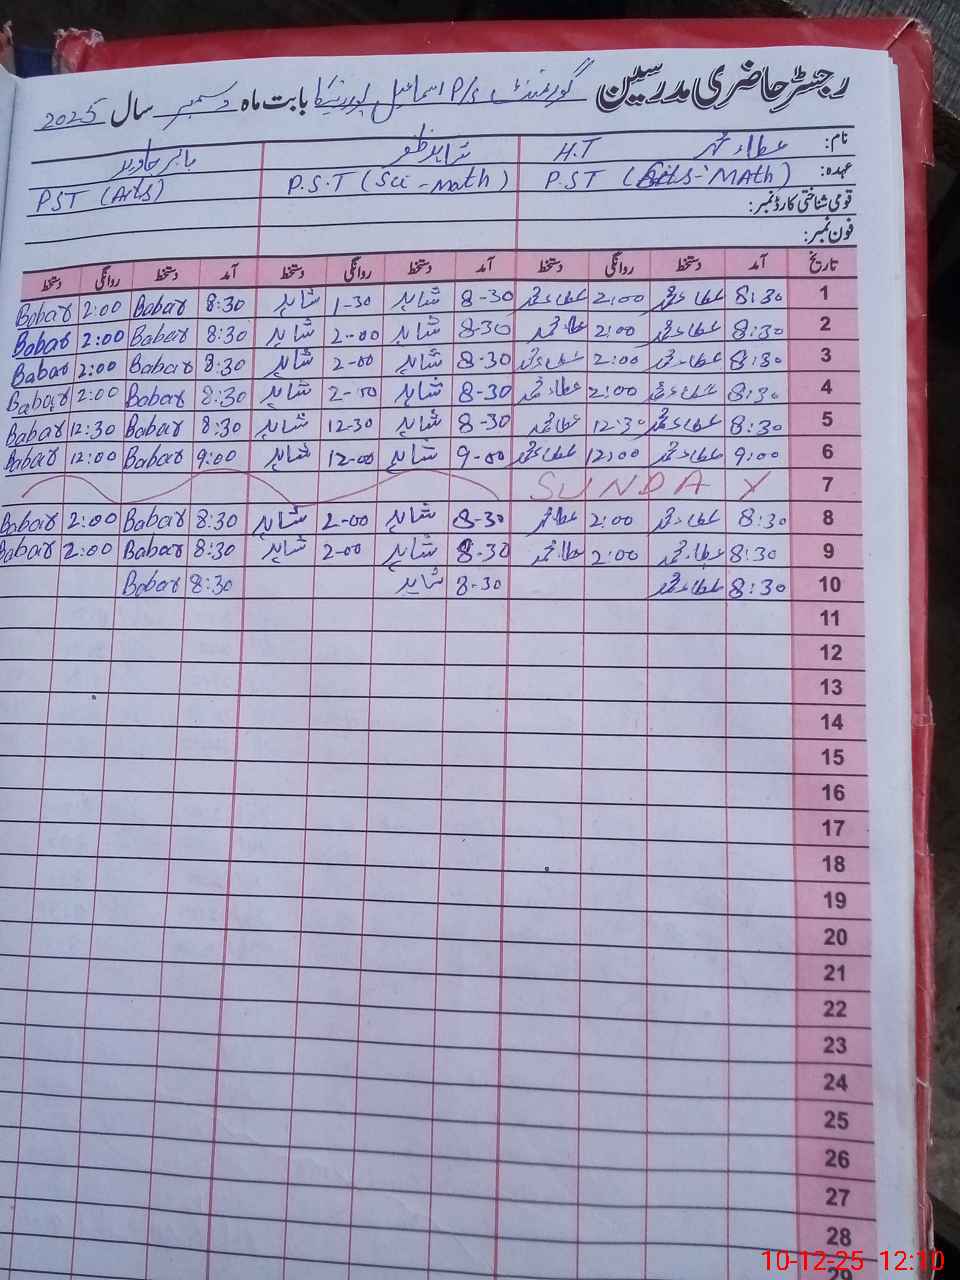 رجسٹر حاضری مدرسین گورنمنٹ P/S اسماعیل بابت ماہ دسمبر سال 2025
نام: عطاء محمد H.T شاہد ظفر بابر جاوید
عہدہ: P.ST (Arts-MAth) P.S.T (Sci-math) PST (Arts)
قومی شناختی کارڈ نمبر:
فون نمبر:
تاریخ آمد دستخط روانگی دستخط آمد دستخط روانگی دستخط آمد دستخط روانگی دستخط
1 8:30 عطاء محمد 2:00 عطاء محمد 8-30 شاہد 1-30 شاہد 8:30 Babar 2:00 Babar
2 8:30 عطاء محمد 2:00 عطاء محمد 8-30 شاہد 2-00 شاہد 8:30 Babar 2:00 Babar
3 8:30 عطاء محمد 2:00 عطاء محمد 8-30 شاہد 2-00 شاہد 8:30 Babar 2:00 Babar
4 8:30 عطاء محمد 2:00 عطاء محمد 8-30 شاہد 2-00 شاہد 8:30 Babar 2:00 Babar
5 8:30 عطاء محمد 12:30 عطاء محمد 8-30 شاہد 12-30 شاہد 8:30 Babar 12:30 Babar
6 9:00 عطاء محمد 12:00 عطاء محمد 9-00 شاہد 12-00 شاہد 9:00 Babar 12:00 Babar
7 SUNDAY
8 8:30 عطاء محمد 2:00 عطاء محمد 8-30 شاہد 2-00 شاہد 8:30 Babar 2:00 Babar
9 8:30 عطاء محمد 2:00 عطاء محمد 8-30 شاہد 2-00 شاہد 8:30 Babar 2:00 Babar
10 8:30 عطاء محمد 8-30 شاہد 8:30 Babar
11
12
13
14
15
16
17
18
19
20
21
22
23
24
25
26
27
28
29
10-12-25 12:10